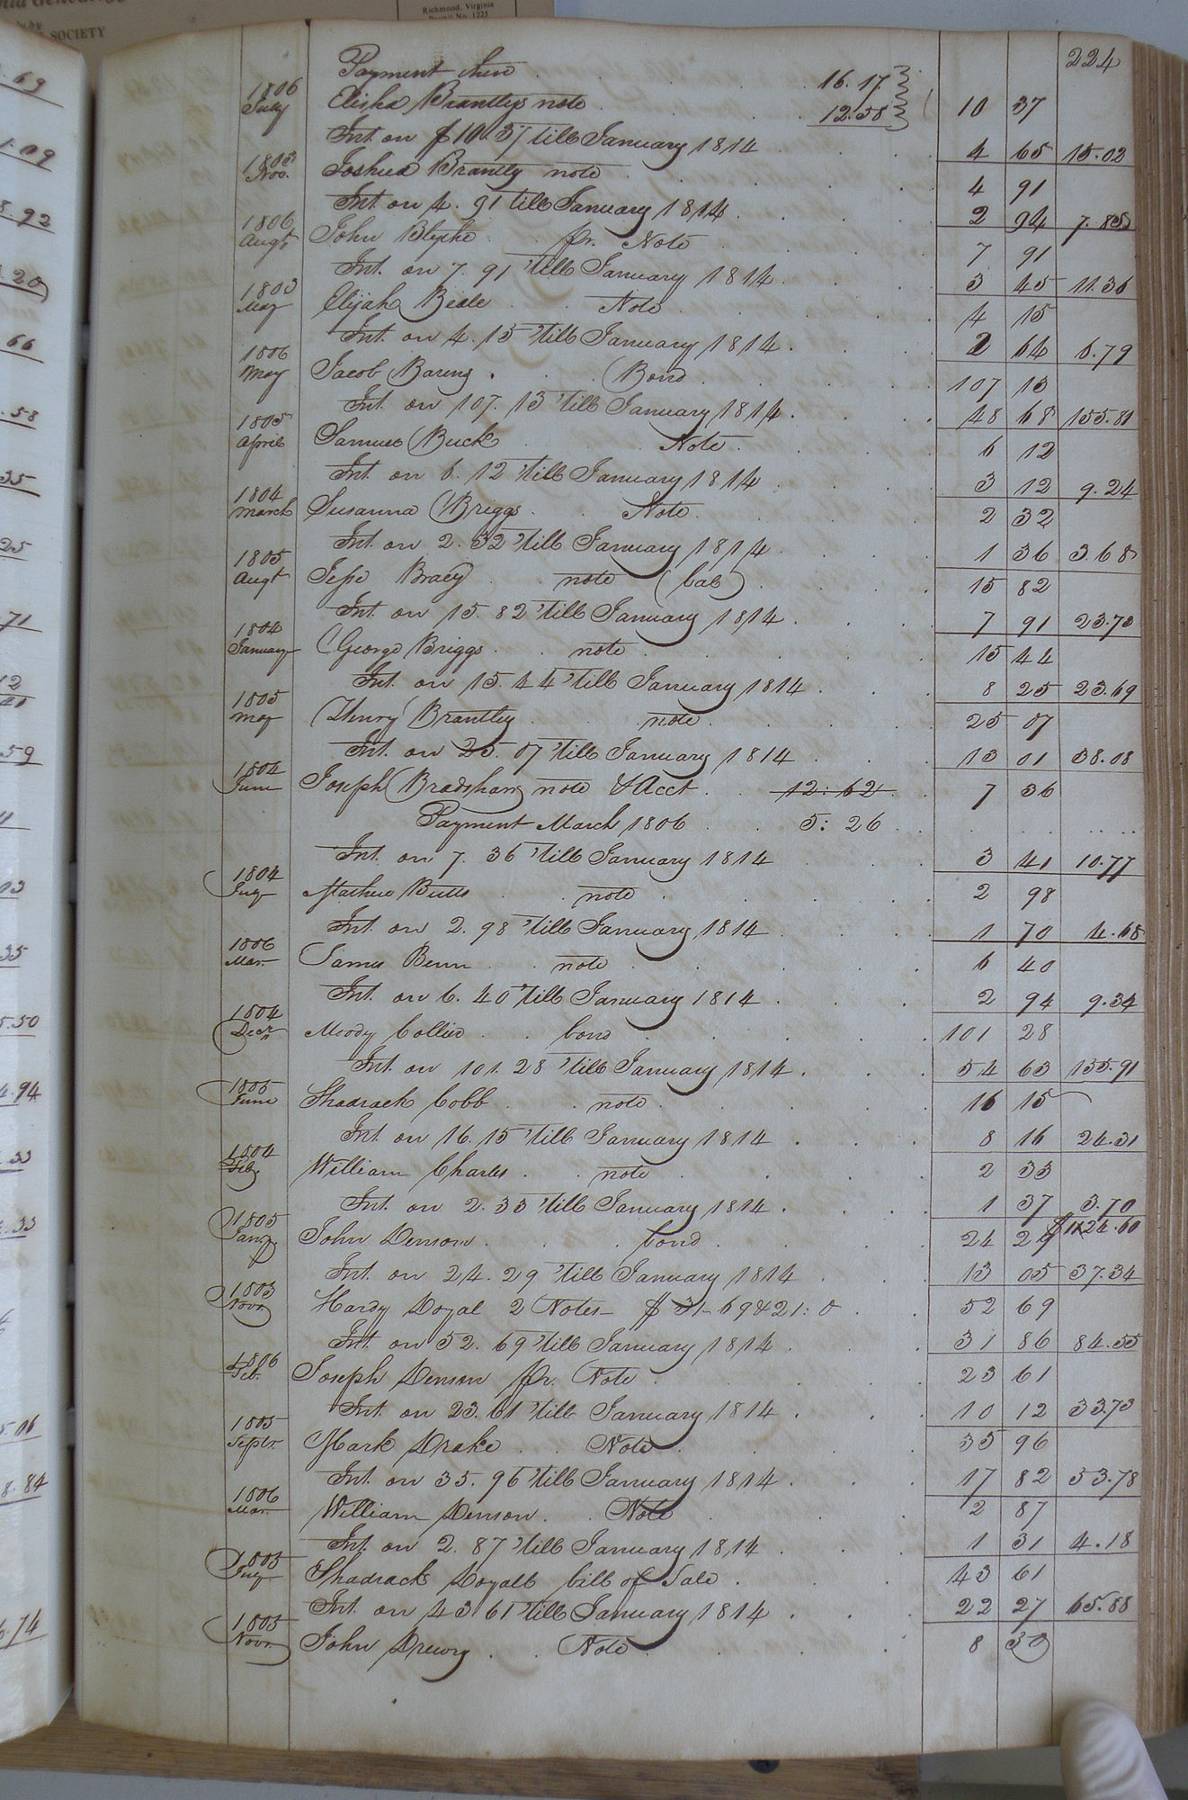 Richmond, Virginia
Permit No. 1225
SOCIETY
224
Payment then 16.17
1806 July Elisha Brantlys note 12.58 10 37
Int. on $10.37 till January 1814 4 65 15.02
1805 Nov. Joshua Brantly note 4 91
Int on 4.91 till January 1814 2 94 7.85
1806 Augt John Blythe jr. Note 7 91
Int. on 7.91 'till January 1814 3 45 11.36
1803 May Elijah Beale Note 4 15
Int. on 4.15 'till January 1814 2 64 6.79
1806 May Jacob Bareng Bond 107 13
Int. on 107.13 'till January 1814 48 68 155.81
1805 April Samuel Buck Note 6 12
Int on 6.12 'till January 1814 3 12 9.24
1804 March Susanna Briggs Note 2 32
Int. on 2.32 'till January 1814 1 36 3.68
1805 Augt Jesse Bracy note (bal) 15 82
Int. on 15.82 'till January 1814 7 91 23.73
1804 January George Briggs note 15 44
Int. on 15.44 'till January 1814 8 25 23.69
1805 May Henry Brantley note 25 07
Int. on 25.07 'till January 1814 13 01 38.08
1804 June Joseph Bradshaw note & Acct. 12:62 7 36
Payment March 1806 5:26
Int. on 7.36 'till January 1814 3 41 10.77
1804 July Mathew Butts note 2 98
Int. on 2.98 'till January 1814 1 70 4.68
1806 Mar. James Benn note 6 40
Int. on 6.40 'till January 1814 2 94 9.34
1804 Decr Moody Collier bond 101 28
Int. on 101.28 'till January 1814 54 63 155.91
1805 June Shadrack Cobb note 16 15
Int. on 16.15 'till January 1814 8 16 24.31
1804 Feb. William Charles note 2 33
Int. on 2.33 'till January 1814 1 37 3.70
$1124.60
1805 Jany John Denson bond 24 29
Int. on 24.29 'till January 1814 13 05 37.34
1803 Novr Hardy Doyal 2 Notes $31-69 & 21:0 52 69
Int. on 52.69 'till January 1814 31 86 84.55
1806 Feb. Joseph Denson jr. Note 23 61
Int. on 23.61 'till January 1814 10 12 33.73
1805 Septr. Mark Drake Note 35 96
Int. on 35.96 'till January 1814 17 82 53.78
1806 Mar. William Denson Note 2 87
Int. on 2.87 'till January 1814 1 31 4.18
1805 July Shadrack Doyall bill of Sale 43 61
Int. on 43 61 'till January 1814 22 27 65.88
1805 Novr. John Drewry Note 8 30